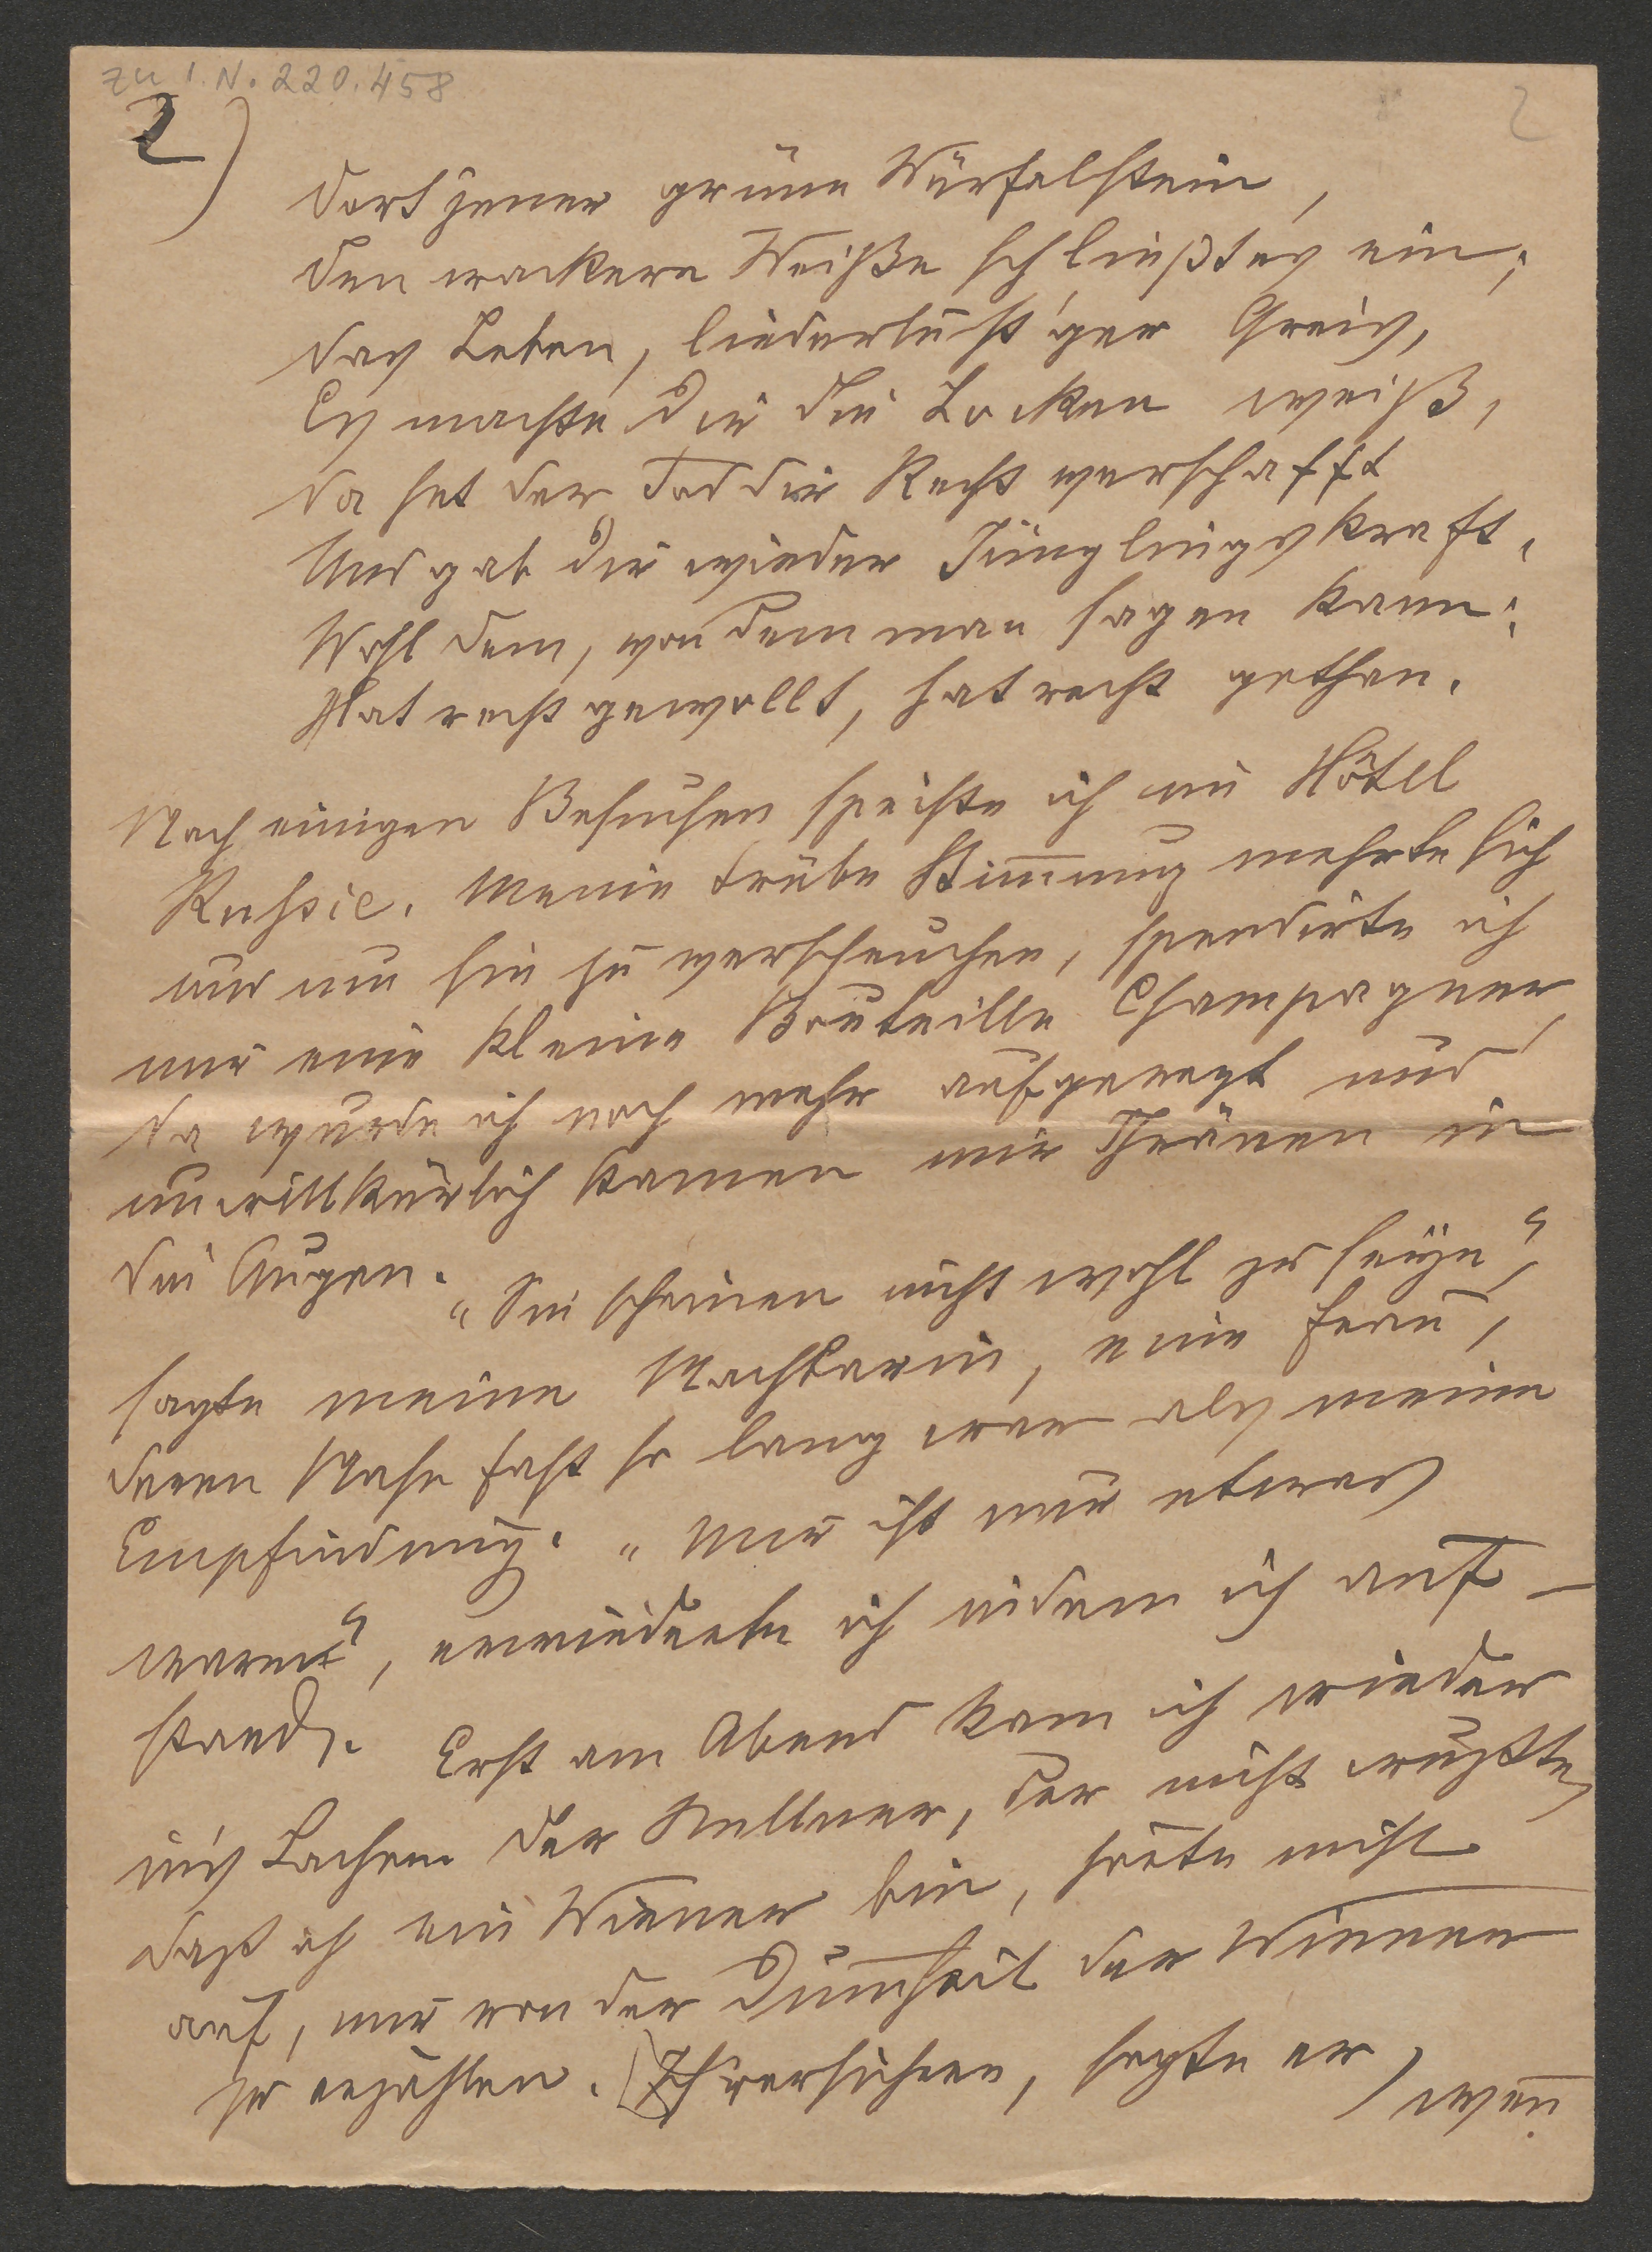 zu I.N. 220.458
2)
2
Dort jener grüne Würfelstein,
Den wackern Weiße schließt es ein;
Das Leben, liederlust'ger Greis,
Es machte dir die Locken weiß,
Da hat der Tod dir Recht verschafft
Und gab dir wieder Jünglingskraft.
Wohl dem, von dem man sagen kann:
Hat recht gewollt, hat recht gethan.
Nach einigen Besuchen speiste ich im Hôtel
Russie. Meine trübe Stimmung mehrte sich
und um sie zu verscheuchen, spendirte ich
mir eine kleine Bouteille Champagner,
da wurde ich noch mehr aufgeregt und
unwillkürlich kamen mir Thränen in
die Augen. „Sie scheinen nicht wohl zu seyn“,
sagte meine Nachbarin, eine Frau,
deren Nase fast so lang war als meine
Empfindung. „Mir ist nur etwas
warm“, erwiederte ich indem ich auf-
stand. Erst am Abend kam ich wieder
ins Lachen. Der Kellner, der nicht wußte,
daß ich ein Wiener bin, hörte nicht
auf, mir von der Dum̅heit der Wiener
zu erzählen. Ich versichere, sagte er, wen̅